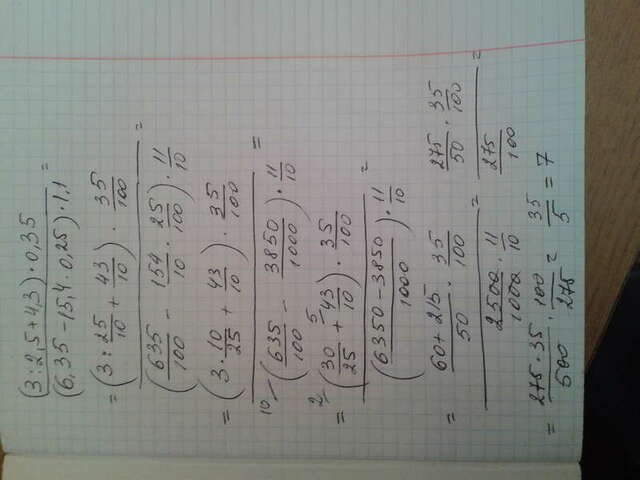 (3:2,5+4,3)·0,35
(6,35-15,4·0,25)·1,1 =
= (3:25/10 + 43/10) · 35/100
(635/100 - 154/10 · 25/100) · 11/10 =
= (3·10/25 + 43/10) · 35/100
10 (635/100 - 3850/1000) · 11/10 =
= 2 (30/25 + 5 43/10) · 35/100
(6350-3850/1000) · 11/10 =
= 60+215/50 · 35/100 = 275/50 · 35/100 =
2500/1000 · 11/10 275/100
= 275·35/500 · 100/275 = 35/5 = 7